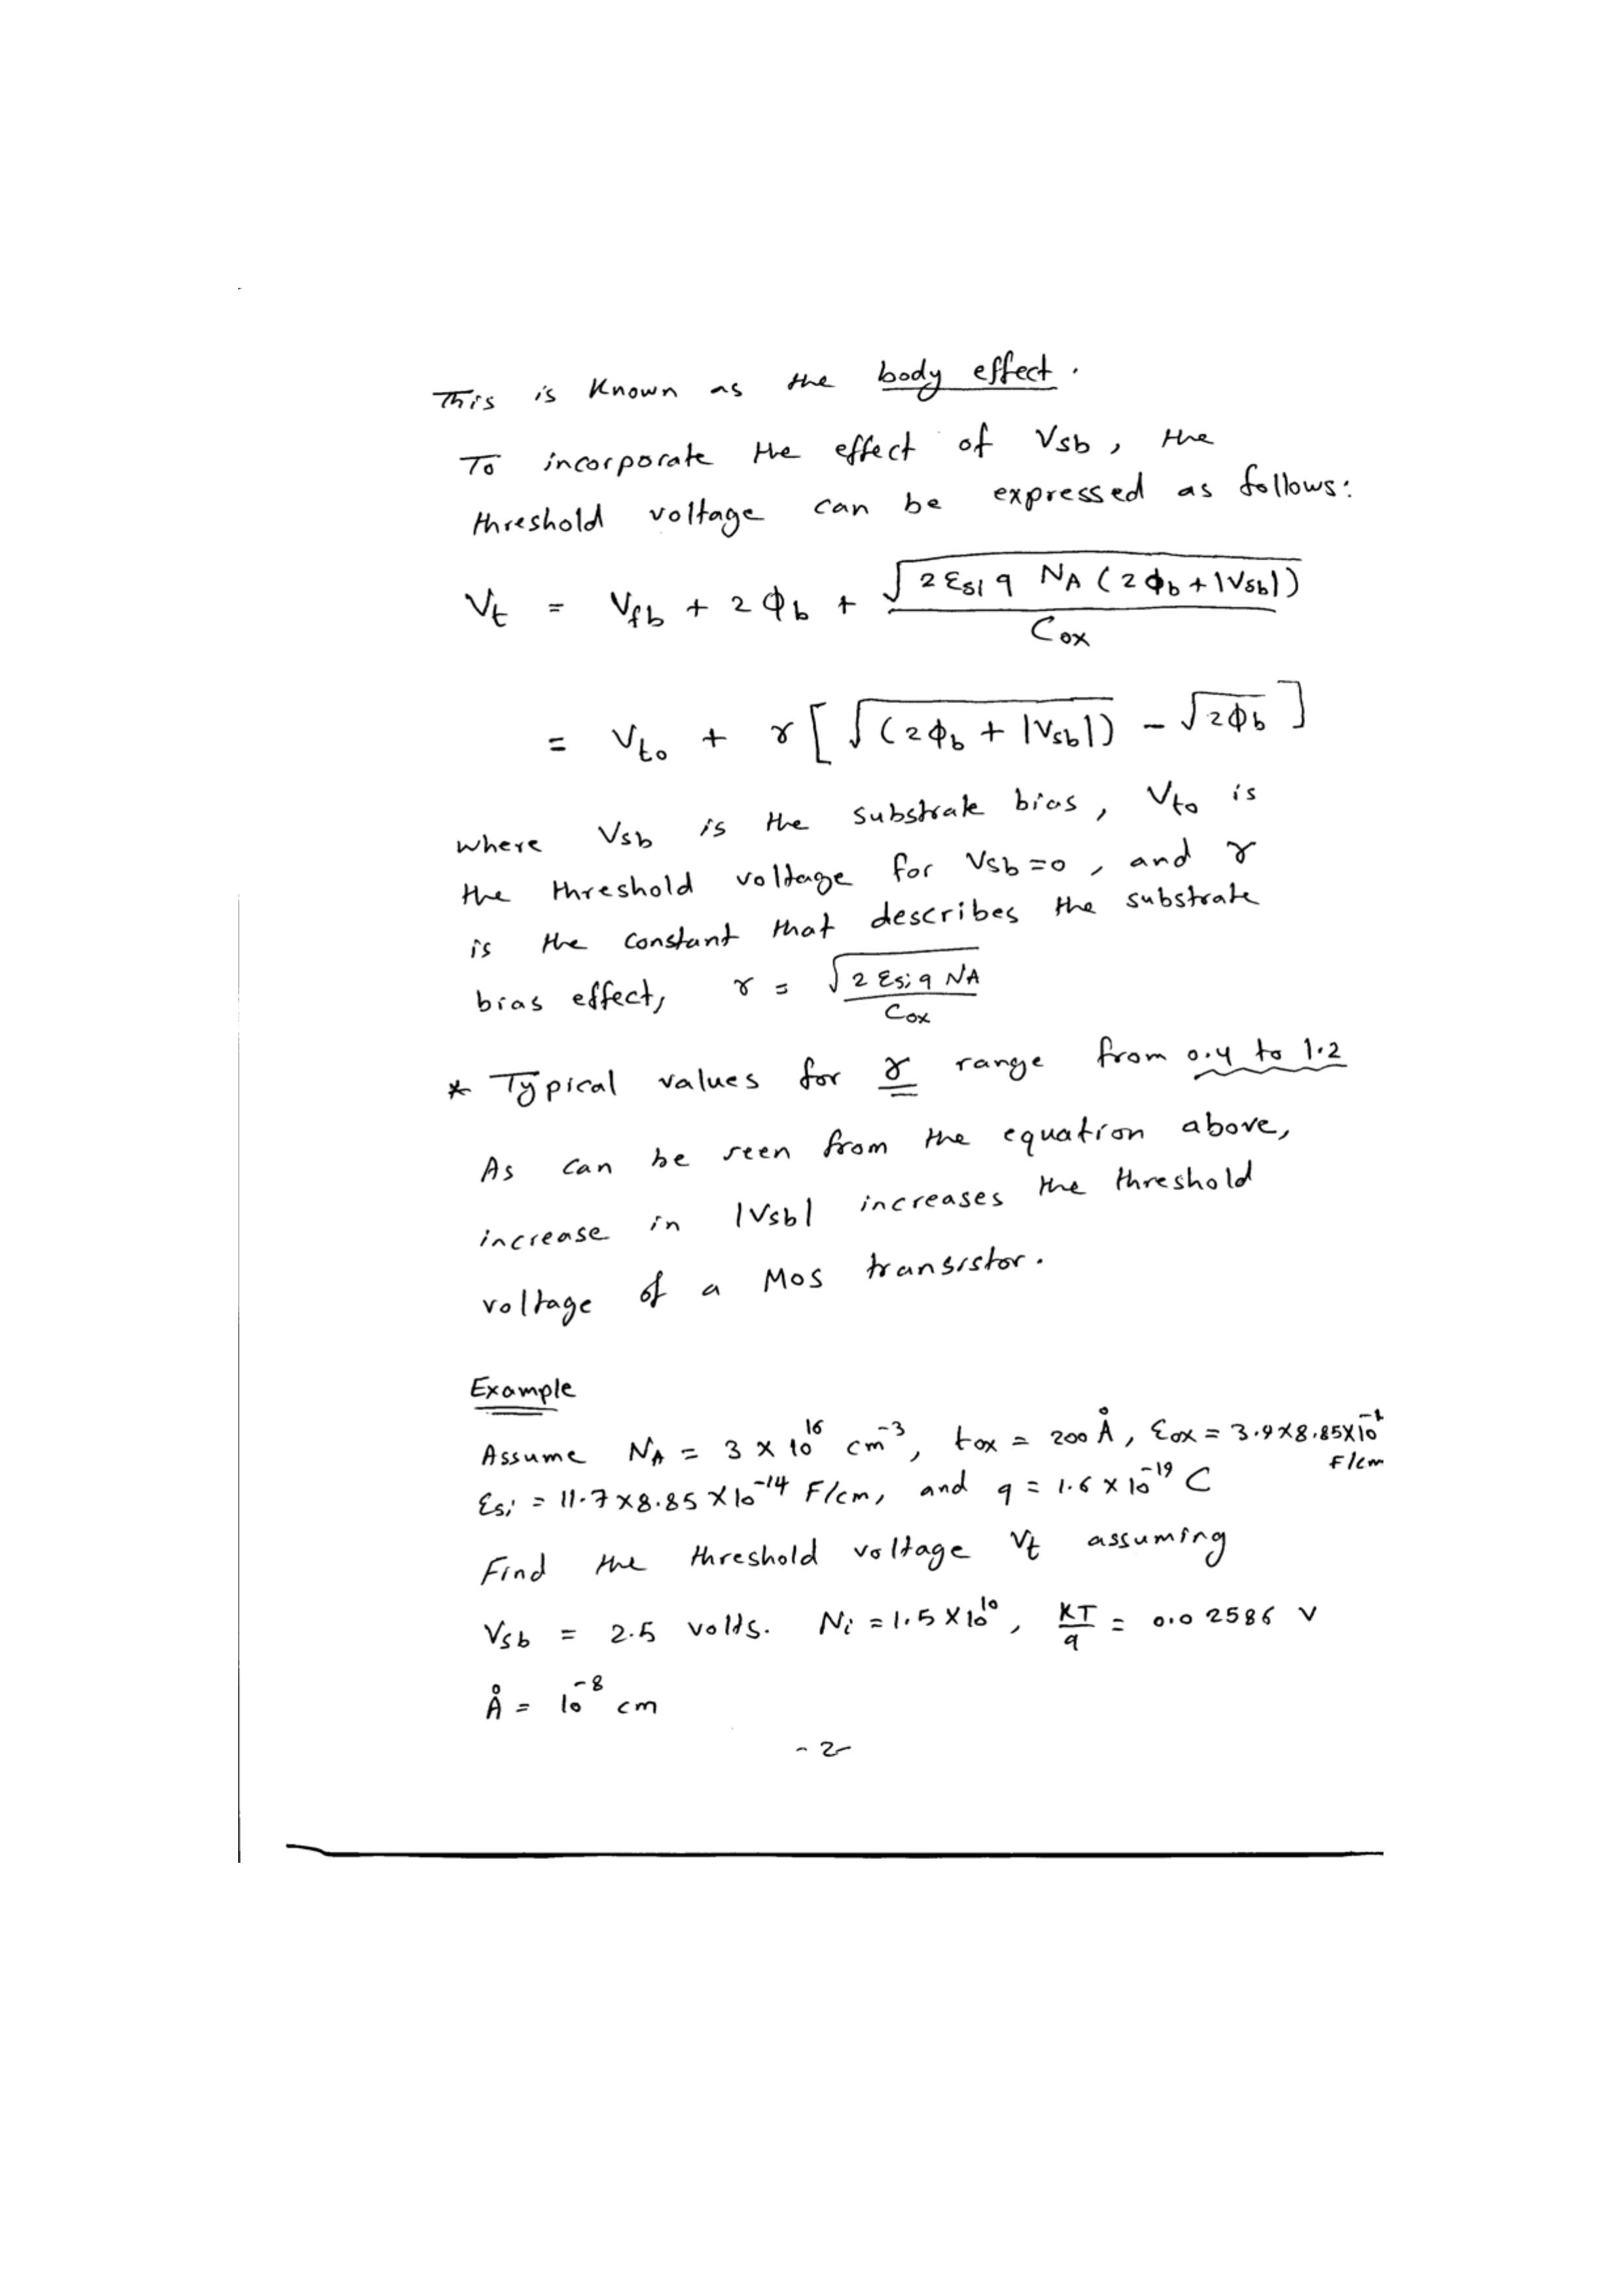 This is known as the body effect.
To incorporate the effect of Vsb, the
threshold voltage can be expressed as follows:
Vt = Vfb + 2ϕb + √(2 Ɛsi q NA (2ϕb + |Vsb|)) / Cox
= Vto + γ [ √((2ϕb + |Vsb|)) - √2ϕb ]
where Vsb is the substrate bias, Vto is
the threshold voltage for Vsb=0, and γ
is the constant that describes the substrate
bias effect, γ = √(2 Ɛsi q NA) / Cox
* Typical values for γ range from 0.4 to 1.2
As can be seen from the equation above,
increase in |Vsb| increases the threshold
voltage of a MOS transistor.
Example
Assume NA = 3 × 10^16 cm^-3, tox = 200 Å, Ɛox = 3.9×8.85×10
F/cm
Ɛsi = 11.7×8.85×10^-14 F/cm, and q = 1.6 × 10^-19 C
Find the threshold voltage Vt assuming
Vsb = 2.5 volts. Ni = 1.5×10^10, KT/q = 0.02586 V
Å = 10^-8 cm
- 2-